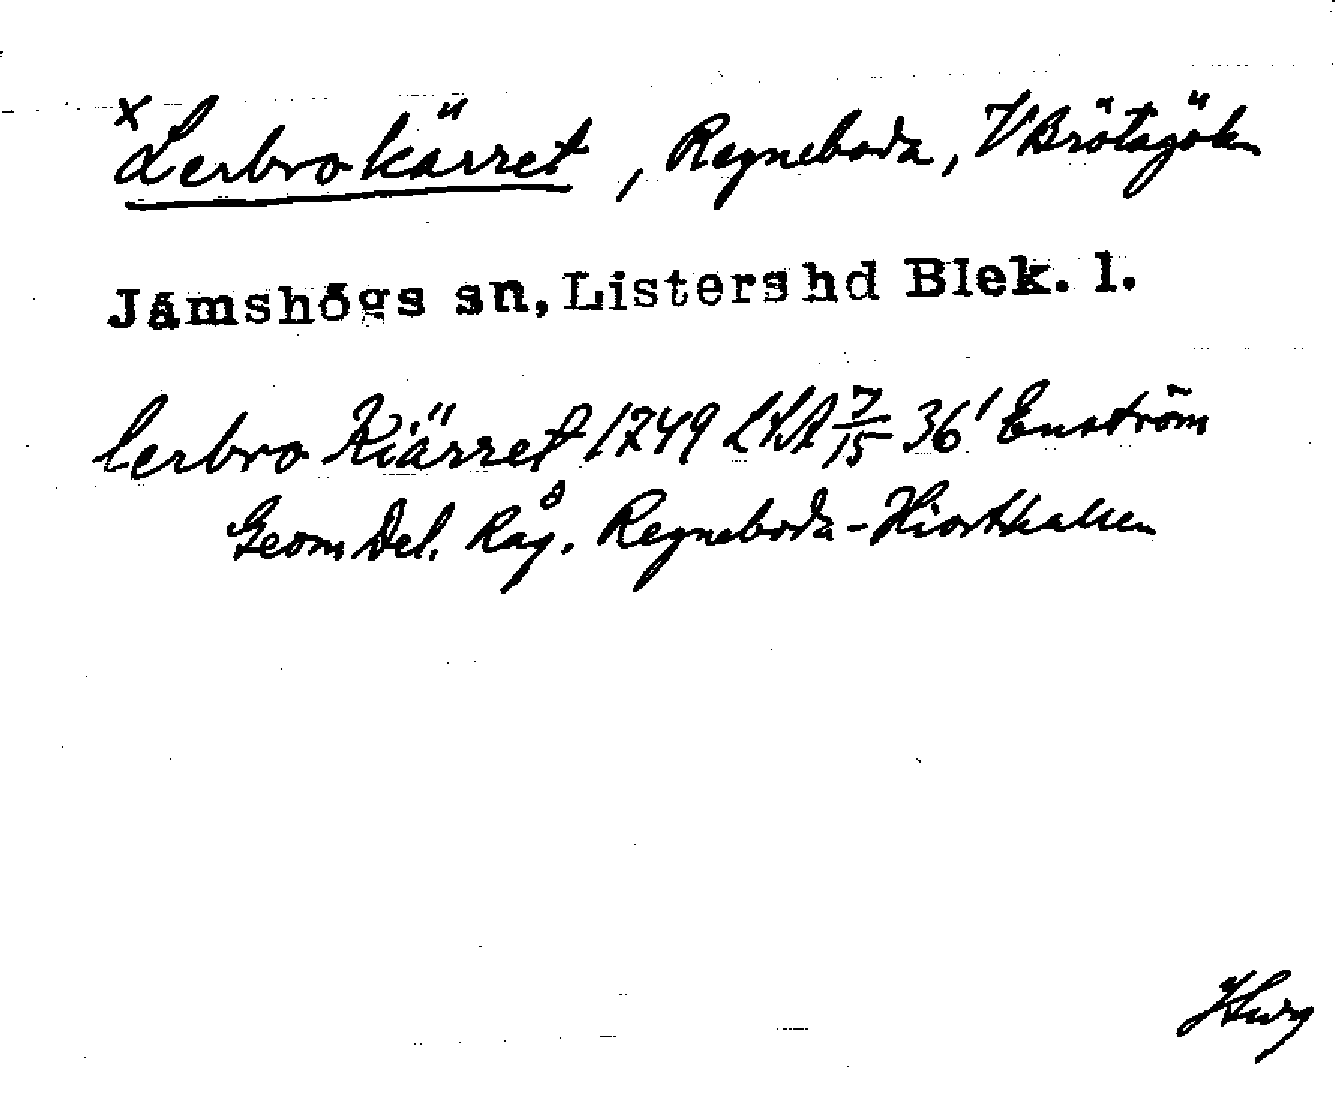 x Lerbrokärret, Regneboda, V Brötagök
Jämshögs sn, Listershd Blek. l.
lerbro Kiärret 1749 LKA 7/15 36' Enström
Geom Del. Råg. Regneboda-Hiorthallen